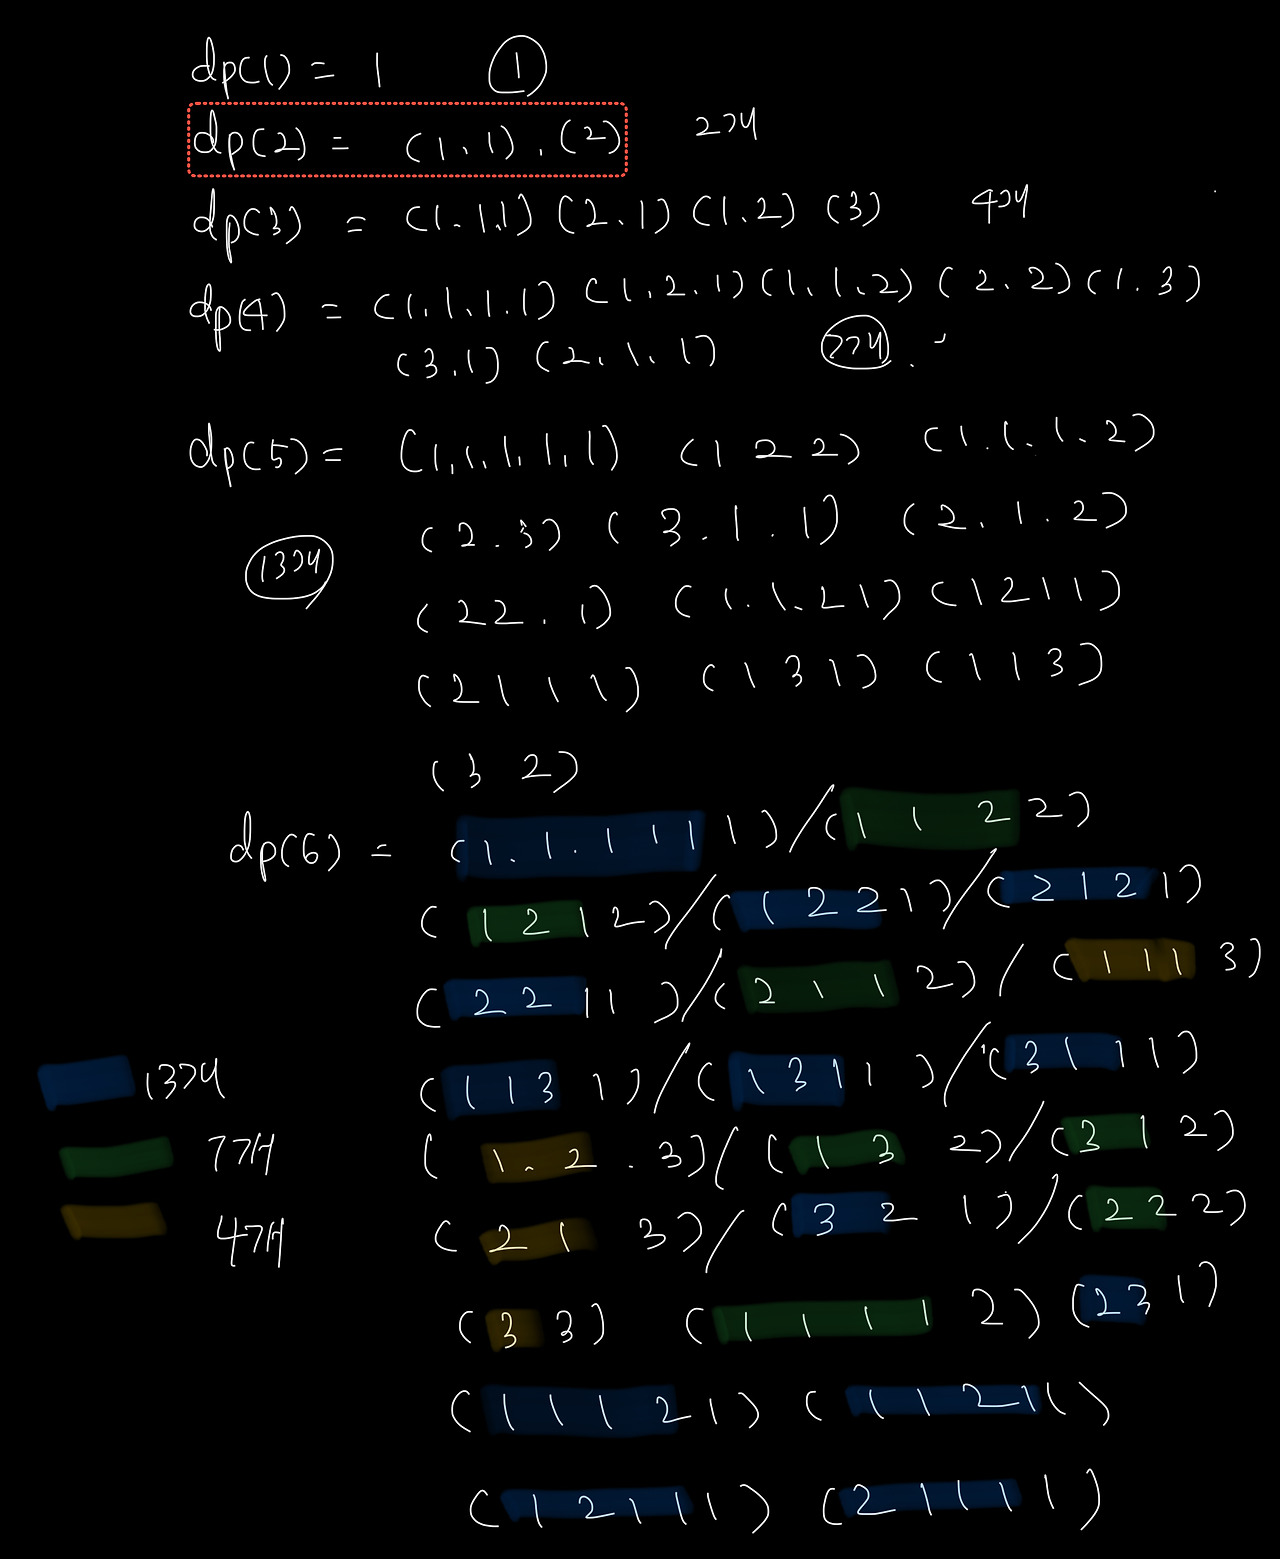 dp(1) = 1 1
dp(2) = (1,1), (2) 2개
dp(3) = (1.1.1) (2.1) (1.2) (3) 4개
dp(4) = (1.1.1.1) (1.2.1) (1.1.2) (2.2) (1.3)
(3.1) (2.1.1) 7개
dp(5) = (1.1.1.1.1) (1 2 2) (1.1.1.2)
(2.3) (3.1.1) (2.1.2)
13개
(2 2.1) (1.1.2 1) (1 2 1 1)
(2 1 1 1) (1 3 1) (1 1 3)
(3 2)
dp(6) = (1.1.1 1 1 1) / (1 1 2 2)
(1 2 1 2) / (1 2 2 1) / (2 1 2 1)
(2 2 1 1) / (2 1 1 2) / (1 1 1 3)
13개 (1 1 3 1) / (1 3 1 1) / (3 1 1 1)
7개 (1.2.3) / (1 3 2) / (3 1 2)
4개 (2 1 3) / (3 2 1) / (2 2 2)
(3 3) (1 1 1 1 2) (2 3 1)
(1 1 1 2 1) (1 1 2 1 1)
(1 2 1 1 1) (2 1 1 1 1)